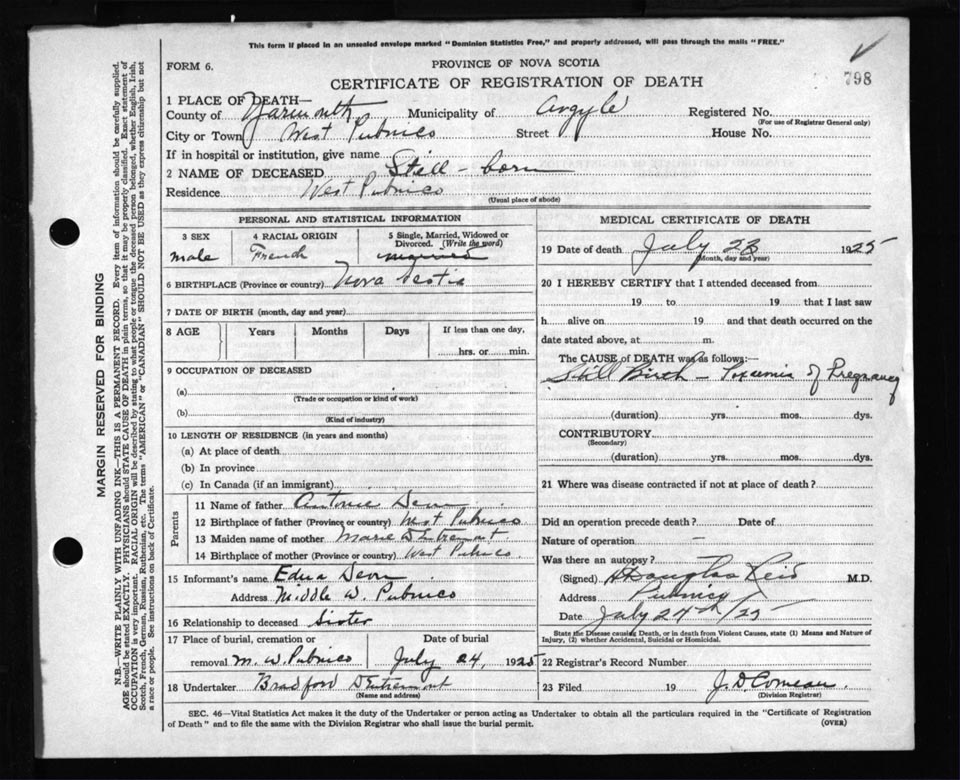 This form if placed in an unsealed envelope marked "Dominion Statistics Free," and properly addressed, will pass through the mails "FREE."
FORM 6.
PROVINCE OF NOVA SCOTIA
CERTIFICATE OF REGISTRATION OF DEATH
798
1 PLACE OF DEATH—
County of Yarmouth Municipality of Argyle Registered No.
(For use of Registrar General only)
City or Town West Pubnico Street House No.
If in hospital or institution, give name
2 NAME OF DECEASED Still-born
Residence West Pubnico
(Usual place of abode)
PERSONAL AND STATISTICAL INFORMATION
3 SEX
male
4 RACIAL ORIGIN
French
5 Single, Married, Widowed or Divorced. (Write the word)
married
6 BIRTHPLACE (Province or country) Nova Scotia
7 DATE OF BIRTH (month, day and year)
8 AGE Years Months Days If less than one day,
hrs. or min.
9 OCCUPATION OF DECEASED
(a)
(Trade or occupation or kind of work)
(b)
(Kind of industry)
10 LENGTH OF RESIDENCE (in years and months)
(a) At place of death
(b) In province
(c) In Canada (if an immigrant)
Parents
11 Name of father Antonie Deon
12 Birthplace of father (Province or country) West Pubnico
13 Maiden name of mother Marie D'Entremont
14 Birthplace of mother (Province or country) West Pubnico.
15 Informant's name Edna Deon
Address Middle W. Pubnico
16 Relationship to deceased Sister
17 Place of burial, cremation or removal M. W. Pubnico
Date of burial
July 24, 1925
18 Undertaker Bradford D'Entremont
(Name and address)
MEDICAL CERTIFICATE OF DEATH
19 Date of death July 23 1925
(Month, day and year)
20 I HEREBY CERTIFY that I attended deceased from
19 to 19 that I last saw
h alive on 19 and that death occurred on the
date stated above, at m.
The CAUSE of DEATH was as follows:—
Still Birth – Toxemia of Pregnancy
(duration) yrs. mos. dys.
CONTRIBUTORY
(Secondary)
(duration) yrs. mos. dys.
21 Where was disease contracted if not at place of death?
Did an operation precede death? Date of
Nature of operation –
Was there an autopsy?
(Signed) Douglas Reid M.D.
Address Pubnico
Date July 24th/25
State the Disease causing Death, or in death from Violent Causes, state (1) Means and Nature of
Injury, (2) whether Accidental, Suicidal or Homicidal.
22 Registrar's Record Number
23 Filed 19 J. D. Comeau.
(Division Registrar)
SEC. 46—Vital Statistics Act makes it the duty of the Undertaker or person acting as Undertaker to obtain all the particulars required in the "Certificate of Registration
of Death" and to file the same with the Division Registrar who shall issue the burial permit.
(OVER)
MARGIN RESERVED FOR BINDING
N.B.—WRITE PLAINLY WITH UNFADING INK—THIS IS A PERMANENT RECORD. Every item of information should be carefully supplied.
AGE should be stated EXACTLY. PHYSICIANS should STATE CAUSE OF DEATH in plain terms, so that it may be properly classified. Exact statement of
OCCUPATION is very important. RACIAL ORIGIN will be described by stating to what people or tongue the deceased person belonged, whether English, Irish,
Scotch, French, German, Russian, Ruthenian, etc. The terms "AMERICAN" or "CANADIAN" SHOULD NOT BE USED as they express citizenship but not
a race or people. See instructions on back of Certificate.